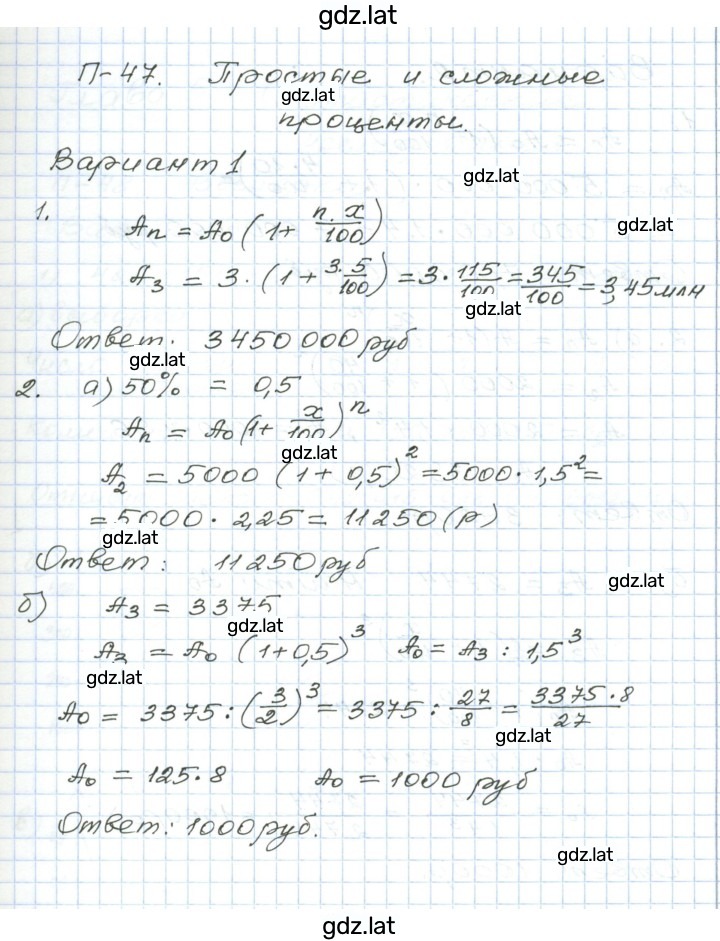 gdz.lat
П-47. Простые и сложные
gdz.lat
проценты.
Вариант 1
gdz.lat
1.
An = A0 (1 + n·x/100)
gdz.lat
A3 = 3·(1 + 3·5/100) = 3·115/100 = 345/100 = 3,45 млн
gdz.lat
Ответ. 3450 000 руб
gdz.lat
2. а) 50% = 0,5
An = A0 (1 + x/100)^n
gdz.lat
A2 = 5000 (1 + 0,5)^2 = 5000·1,5^2 =
= 5000·2,25 = 11250 (р)
gdz.lat
Ответ: 11250 руб
gdz.lat
б) A3 = 3375
gdz.lat
A3 = A0 (1+0,5)^3 A0 = A3 : 1,5^3
gdz.lat
A0 = 3375 : (3/2)^3 = 3375 : 27/8 = 3375·8/27
gdz.lat
A0 = 125·8 A0 = 1000 руб
Ответ: 1000 руб.
gdz.lat
gdz.lat